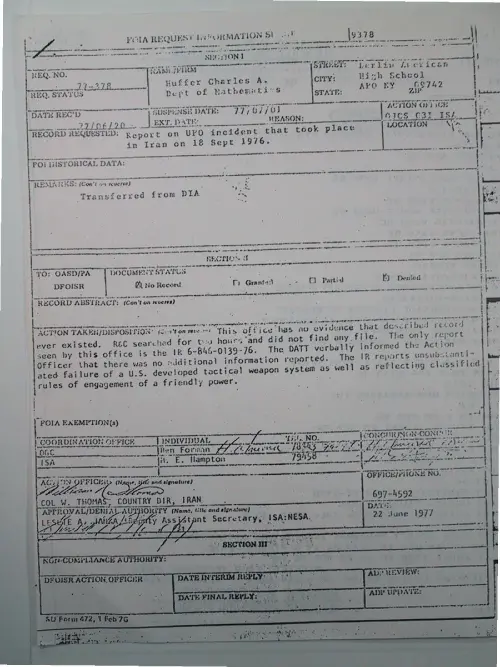 FOIA REQUEST INFORMATION
9378
SECTION I
REQ. NO.
77-378
NAME/FIRM
Huffer Charles A.
Dept of Mathematics
STREET: Berlin American
CITY: High School
STATE: APO NY 09742
ZIP
REQ. STATUS
DATE REC'D
77/06/20
SUSPENSE DATE: 77/07/01
EXT. DATE: REASON:
ACTION OFFICE
OJCS C3I ISA
LOCATION
RECORD REQUESTED: Report on UFO incident that took place
in Iran on 18 Sept 1976.
FOI HISTORICAL DATA:
REMARKS: (Con't on reverse)
Transferred from DIA
SECTION II
TO: OASD/PA
DFOISR
DOCUMENT STATUS
No Record Granted Partial Denied
RECORD ABSTRACT: (Con't on reverse)
ACTION TAKEN/DISPOSITION (Con't on reverse) This office has no evidence that described record
ever existed. R&C searched for two hours and did not find any file. The only report
seen by this office is the IR 6-846-0139-76. The DATT verbally informed the Action
Officer that there was no additional information reported. The IR reports unsubstanti-
ated failure of a U.S. developed tactical weapon system as well as reflecting classified
rules of engagement of a friendly power.
FOIA EXEMPTION(s)
COORDINATION OFFICE INDIVIDUAL TEL. NO. CONCUR/NON-CONCUR
OGC Ben Forman
ISA H. E. Hampton 79458
ACTION OFFICER: (Name, title and signature)
COL W. THOMAS, COUNTRY DIR, IRAN
OFFICE/PHONE NO.
697-4592
APPROVAL/DENIAL AUTHORITY (Name, title and signature)
LESLIE A. JANKA, Deputy Assistant Secretary, ISA:NESA
DATE:
22 June 1977
SECTION III
NON-COMPLIANCE AUTHORITY:
DFOISR ACTION OFFICER
DATE INTERIM REPLY:
ADP REVIEW:
DATE FINAL REPLY:
ADP UPDATE:
SD Form 472, 1 Feb 76